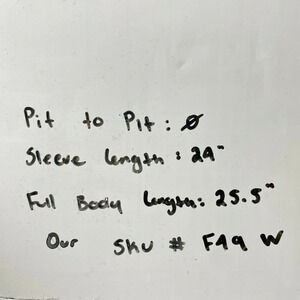 Pit to Pit: Ø
Sleeve length: 24"
Full Body length: 25.5"
Our SKU # F49 W